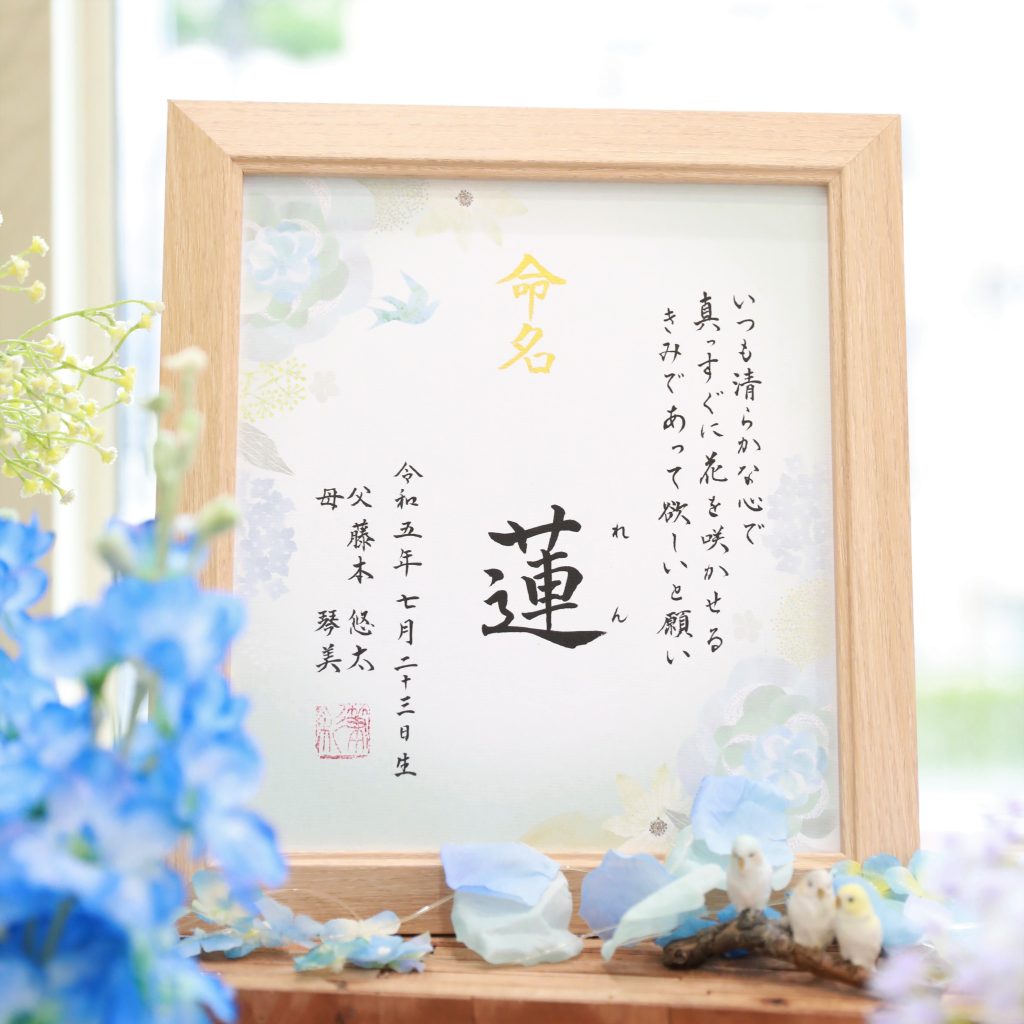 命名
いつも清らかな心で
真っすぐに花を咲かせる
きみであって欲しいと願い
れん
蓮
令和五年七月二十三日生
父 藤本 悠太
母 琴美